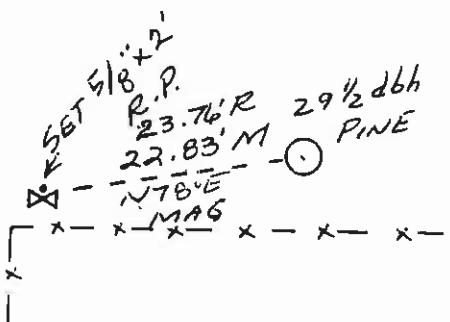 SET 5/8" + 2'
R.P.
23.76' R
22.83' M
N78°E
MAG
29 1/2 dbh
PINE